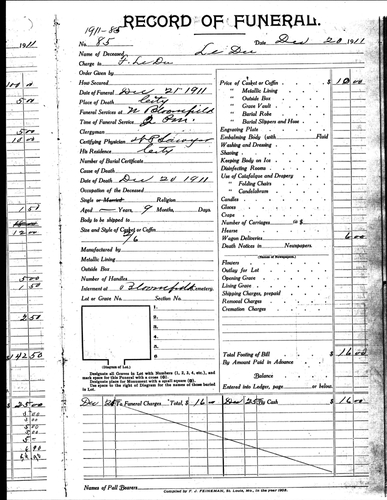 RECORD OF FUNERAL.
1911-85
1911
No. 85
Date Dec 20 1911
Name of Deceased Le Deu
Charge to
Order Given by
How Secured
Date of Funeral Dec 21 1911
Place of Death City
Funeral Services at N Bloomfield
Time of Funeral Service 2 Pm.
Clergyman
Certifying Physician
His Residence City
Number of Burial Certificate
Cause of Death
Date of Death Dec 20 1911
Occupation of the Deceased
Single or Married Religion
Aged — Years, 9 Months, Days.
Body to be Shipped to
Size and Style of Casket or Coffin
2/6
Manufactured by
Metallic Lining
Outside Box
Number of Handles
Interment at Bloomfield Cemetery.
Lot or Grave No. Section No.
1.
2.
3.
4.
5.
6.
(Diagram of Lot.)
Designate all Graves in Lot with Numbers (1, 2, 3, 4, etc.), and mark space for this Funeral with a cross
Designate place for Monument with a small square
Use space to the right of Diagram for the names of those buried in Lot.
Price of Casket or Coffin $ 10 00
" Metallic Lining
" Outside Box
" Grave Vault
" Burial Robe
" Burial Slippers and Hose
Engraving Plate
Embalming Body (with Fluid
Washing and Dressing
Shaving
Keeping Body on Ice
Disinfecting Rooms
Use of Catafalque and Drapery
" Folding Chairs
" Candelabrum
Candles
Gloves
Crape
Number of Carriages @ $
Hearse
Wagon Deliveries 6 00
Death Notices in Newspapers.
(Names of Newspapers)
Flowers
Outlay for Lot
Opening Grave
Lining Grave
Shipping Charges, prepaid
Removal Charges
Cremation Charges
Total Footing of Bill $ 16 00
By Amount Paid in Advance
Balance
Entered into Ledger, page or below.
Dec To Funeral Charges Total, $ 16 00
Dec 25 By Cash $ 16 00
Names of Pall Bearers
Compiled by F. J. FEINEMAN, St. Louis, Mo.